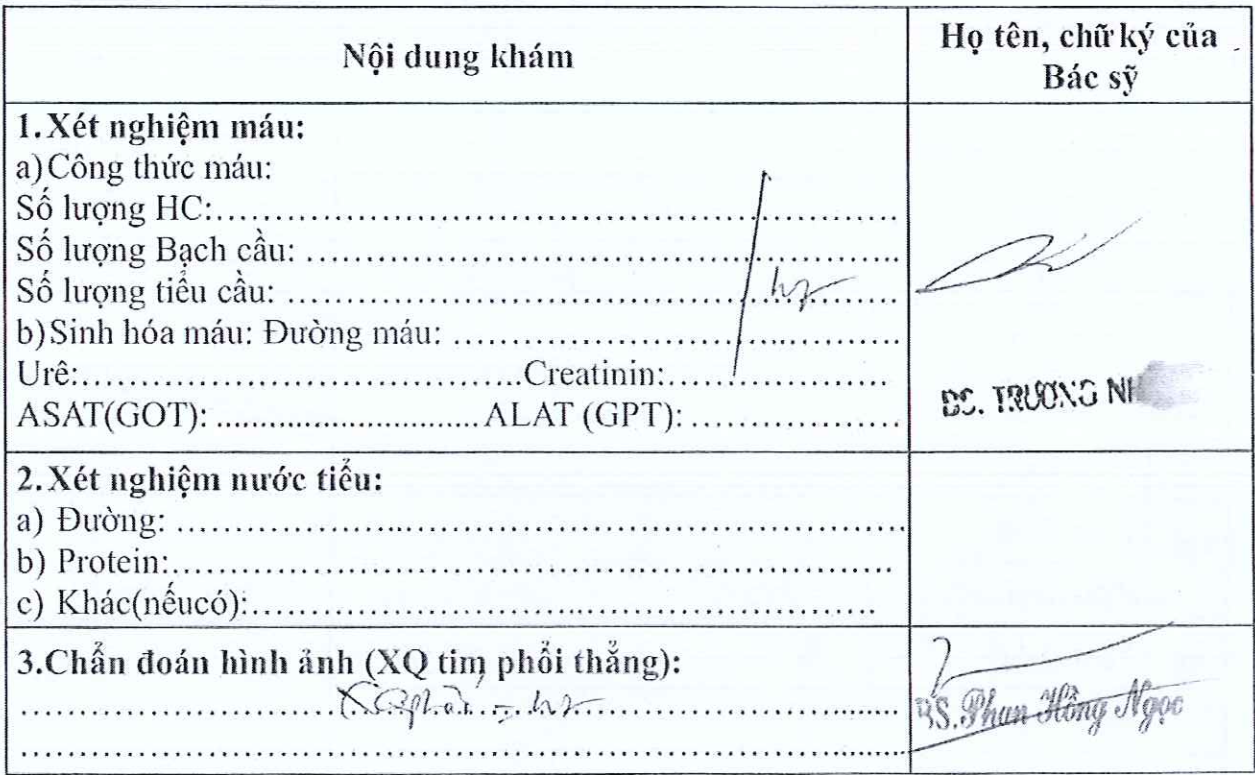 Nội dung khám
Họ tên, chữ ký của
Bác sỹ
1.Xét nghiệm máu:
a)Công thức máu:
Số lượng HC:........................................................
Số lượng Bạch cầu: ........................................................
Số lượng tiểu cầu:........................................................
b)Sinh hóa máu: Đường máu: ........................................
Urê:........................................Creatinin:....................
ASAT(GOT): ............................ALAT (GPT): ....................
BS. TRƯƠNG
2.Xét nghiệm nước tiểu:
a) Đường: ........................................................
b) Protein:........................................................
c) Khác(nếucó):........................................................
3.Chẩn đoán hình ảnh (XQ tim phổi thẳng):
BS. Phan Hồng Ngọc